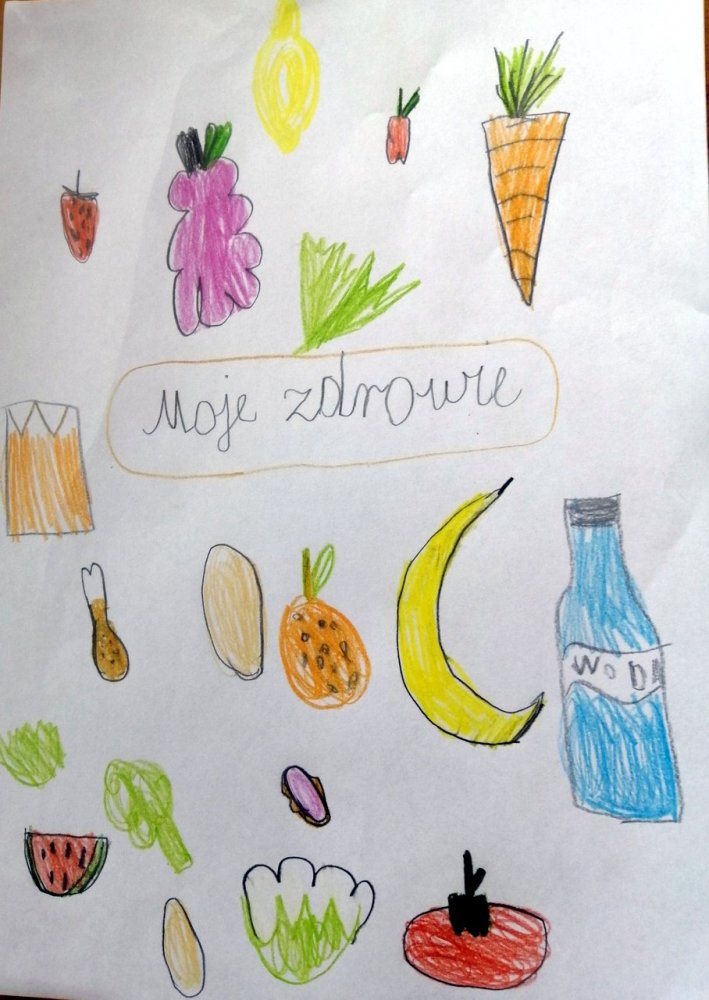 Moje zdrowie
WODA